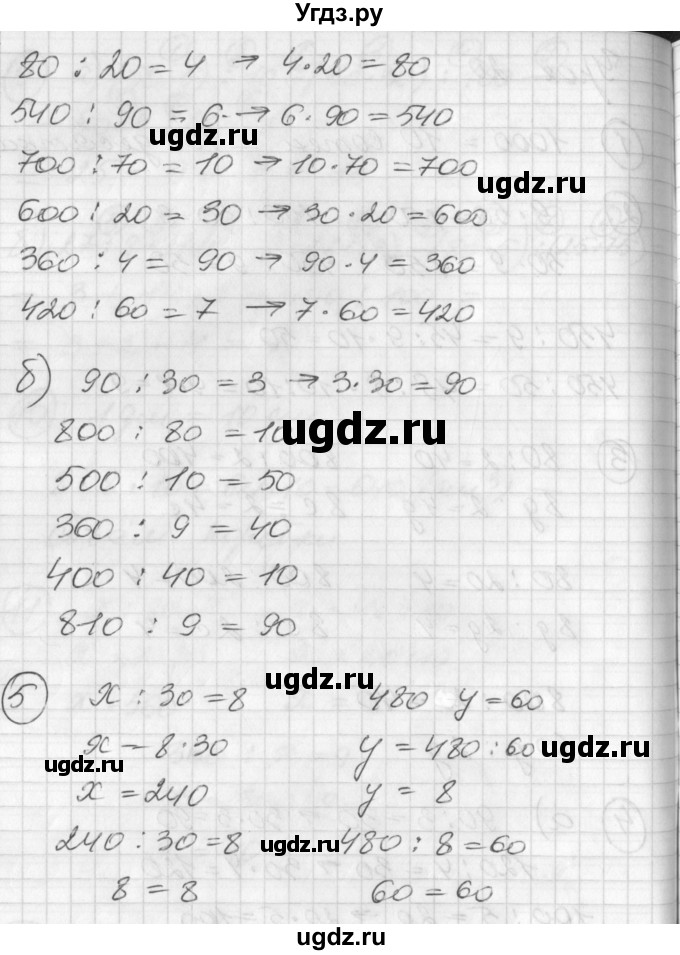 Угдз.ру
80 : 20 = 4 → 4·20 = 80
540 : 90 = 6 → 6·90 = 540
ugdz.ru
700 : 70 = 10 → 10·70 = 700
ugdz.ru
600 : 20 = 30 → 30·20 = 600
360 : 4 = 90 → 90·4 = 360
420 : 60 = 7 → 7·60 = 420
б) 90 : 30 = 3 → 3·30 = 90
800 : 80 = 10
ugdz.ru
500 : 10 = 50
360 : 9 = 40
400 : 40 = 10
ugdz.ru
810 : 9 = 90
ugdz.ru
5 x : 30 = 8 480 y = 60
x – 8·30 y = 480 : 60
ugdz.ru ugdz.ru
x = 240 y = 8
240 : 30 = 8 480 : 8 = 60
ugdz.ru
8 = 8 60 = 60
ugdz.ru